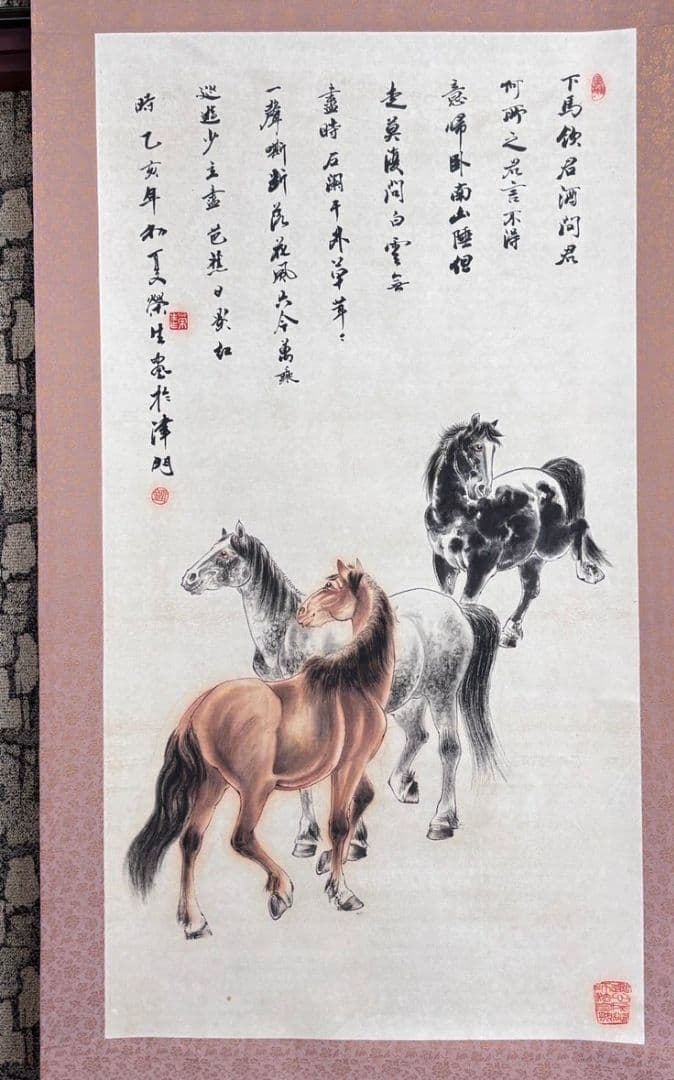 下馬飲君酒問君
何所之君言不得
意歸卧南山陲但
去莫復問白雲無
盡時石闌干外草茸々
一聲嘶斷落花風只今萬乘
巡遊少立盡芭蕉日影紅
時乙亥年初夏榮生畫於津門